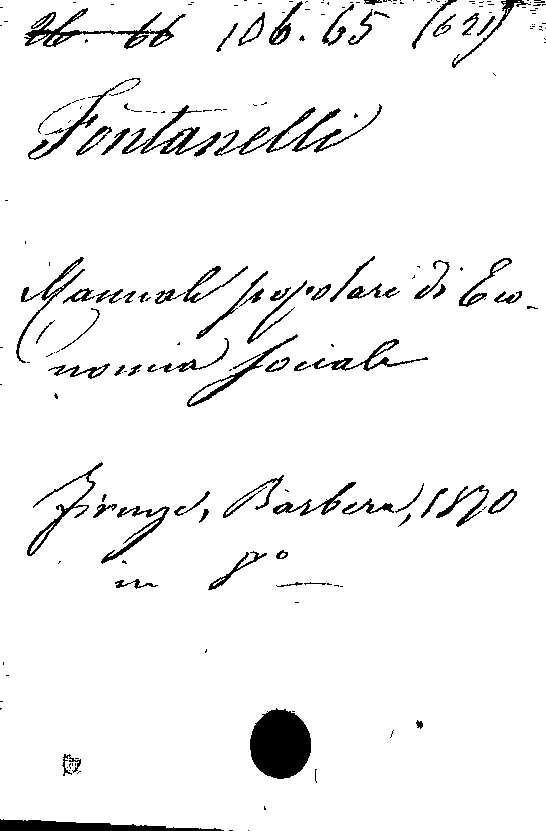 26. 66 106.65 (621)
Fontanelli
Manuale popolare di Eco-
nomia sociale
Firenze, Barbera, 1870
in 8º